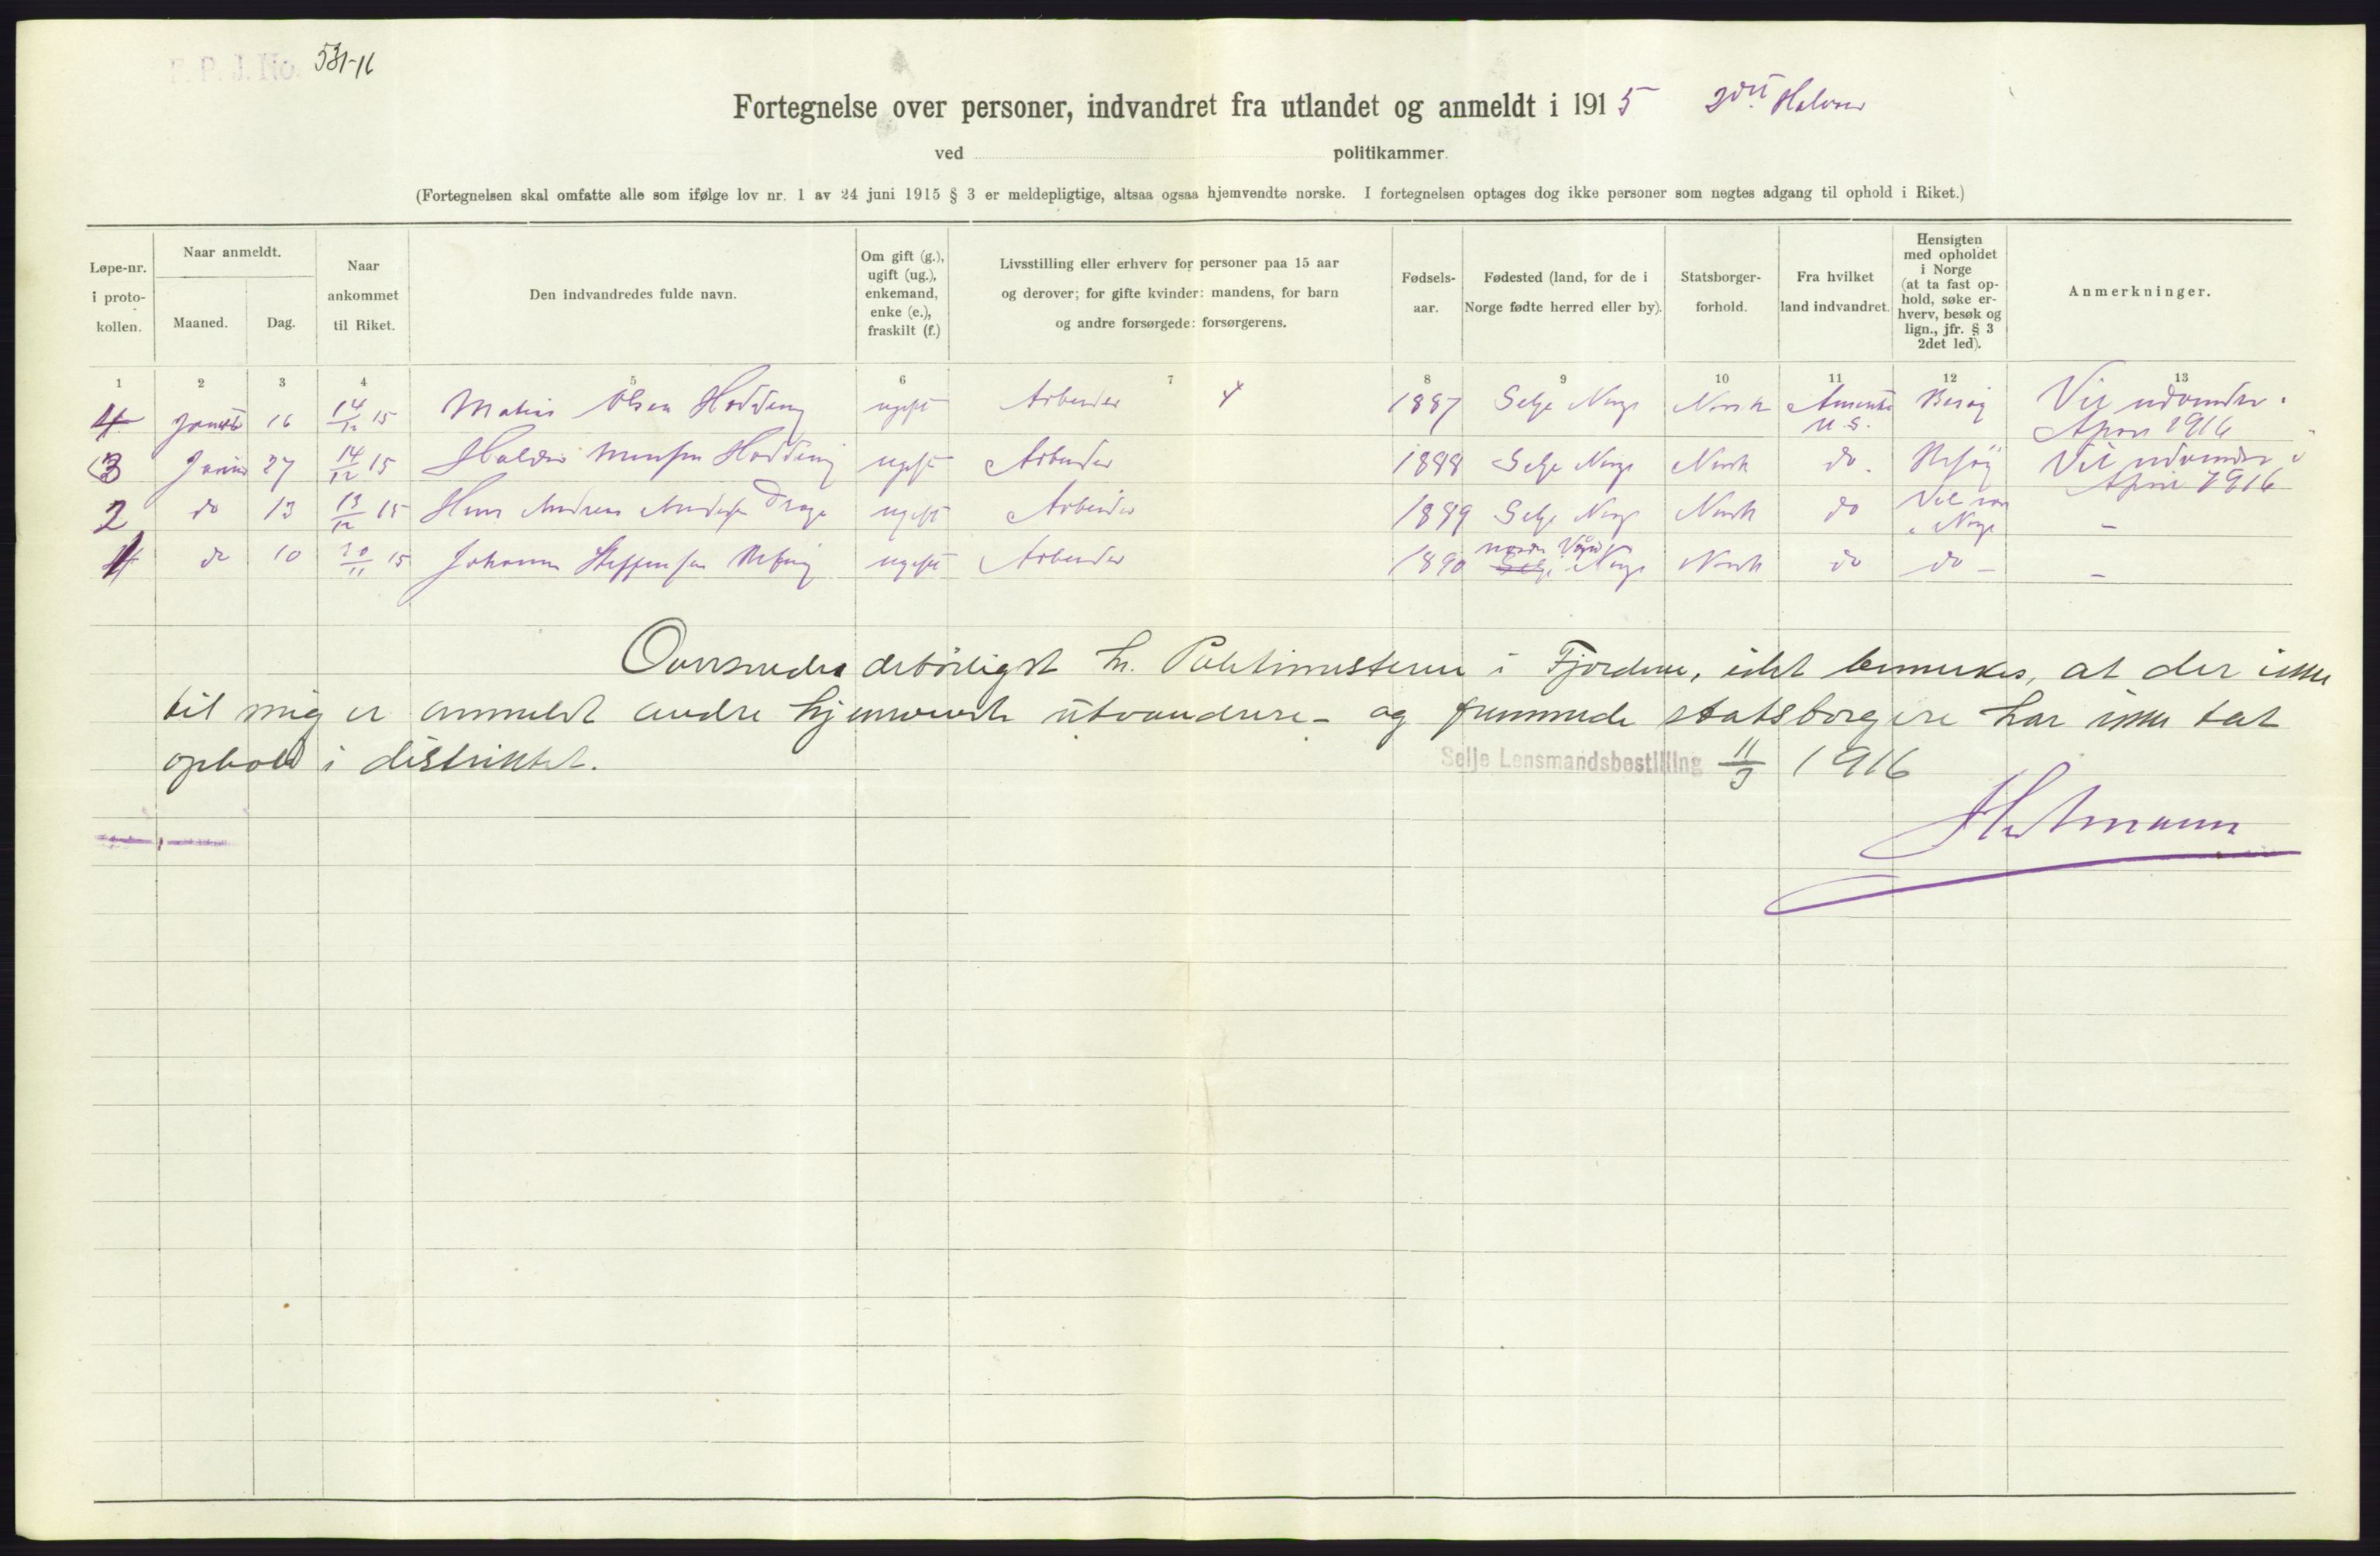 F. P. J. No. 531-16
Fortegnelse over personer, indvandret fra utlandet og anmeldt i 1915
ved politikammer.
(Fortegnelsen skal omfatte alle som ifølge lov nr. 1 av 24 juni 1915 § 3 er meldepligtige, altsaa ogsaa hjemvendte norske. I fortegnelsen optages dog ikke personer som negtes adgang til ophold i Riket.)
Løpe-nr. i proto- kollen.
Naar anmeldt.
Maaned.
Dag.
Naar ankommet til Riket.
Den indvandredes fulde navn.
Om gift (g.), ugift (ug.), enkemand, enke (e.), fraskilt (f.)
Livsstilling eller erhverv for personer paa 15 aar
og derover; for gifte kvinder: mandens, for barn
og andre forsørgede: forsørgerens.
Fødsels- aar.
Fødested (land, for de i Norge fødte herred eller by).
Statsborger- forhold.
Fra hvilket land indvandret.
Hensigten med opholdet i Norge (at ta fast op- hold, søke er- hverv, besøk og lign., jfr. § 3 2det led).
Anmerkninger.
1 2 3 4 5 6 7 8 9 10 11 12 13
4 16 14/12 15 Olsen Hoddevig ugift Arbeider 4 1887 Selje Norge Norsk Amerika U.S. Besøg Vil April 1916
3 27 14/12 15 Hoddevig ugift Arbeider 1888 Selje Norge Norsk do. Besøg Vil April 1916
2 do 13 13/12 15 Hans Andreas Drage ugift Arbeider 1889 Selje Norge Norsk do Norge -
1 do 10 20/11 15 Johannes Steffensen ugift Arbeider 1890 Norge Norsk do do - -
Oversendes ærbødigst hr. Politimesteren i Fjordene, idet bemerkes, at der ikke
til mig er anmeldt andre hjemvendte utvandrere - og fremmede statsborgere har ikke tat
ophold i distriktet.
Selje Lensmandsbestilling 11/3 1916